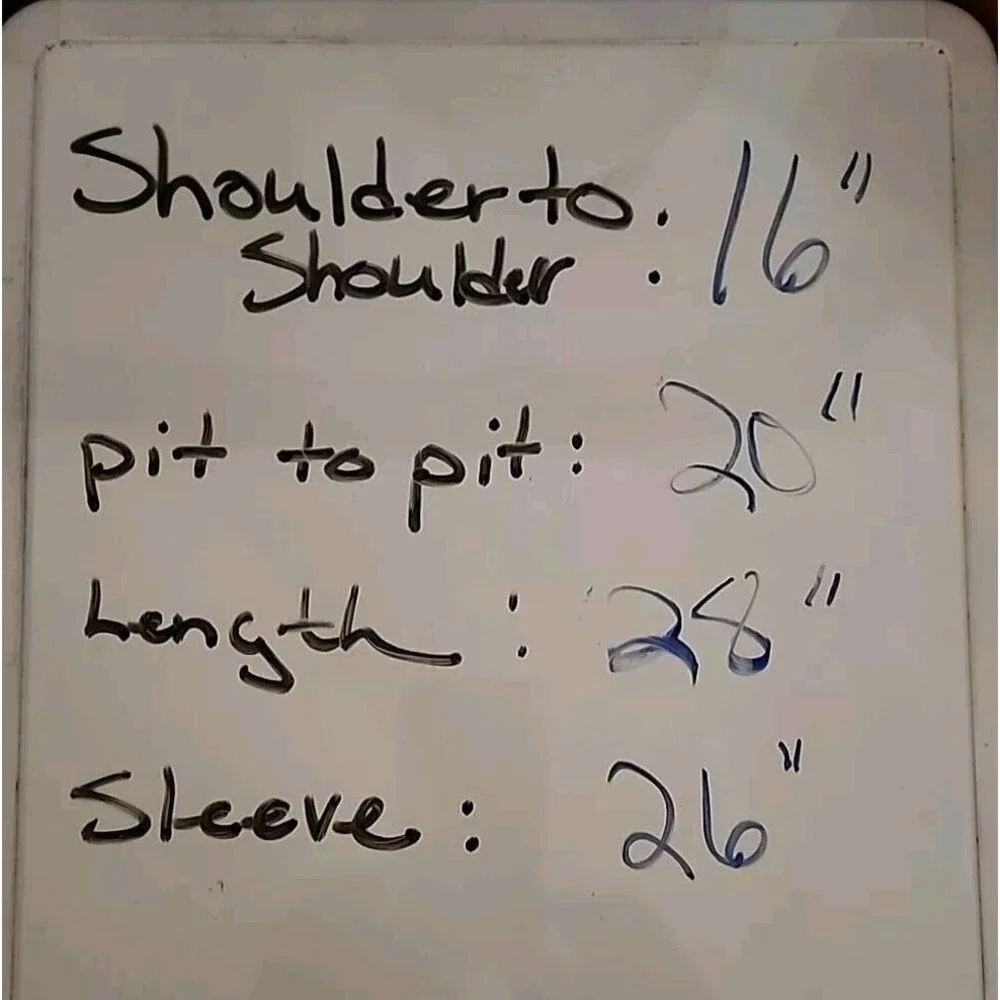 Shoulder to : 16"
Shoulder
pit to pit: 20"
Length : 28"
Sleeve : 26"